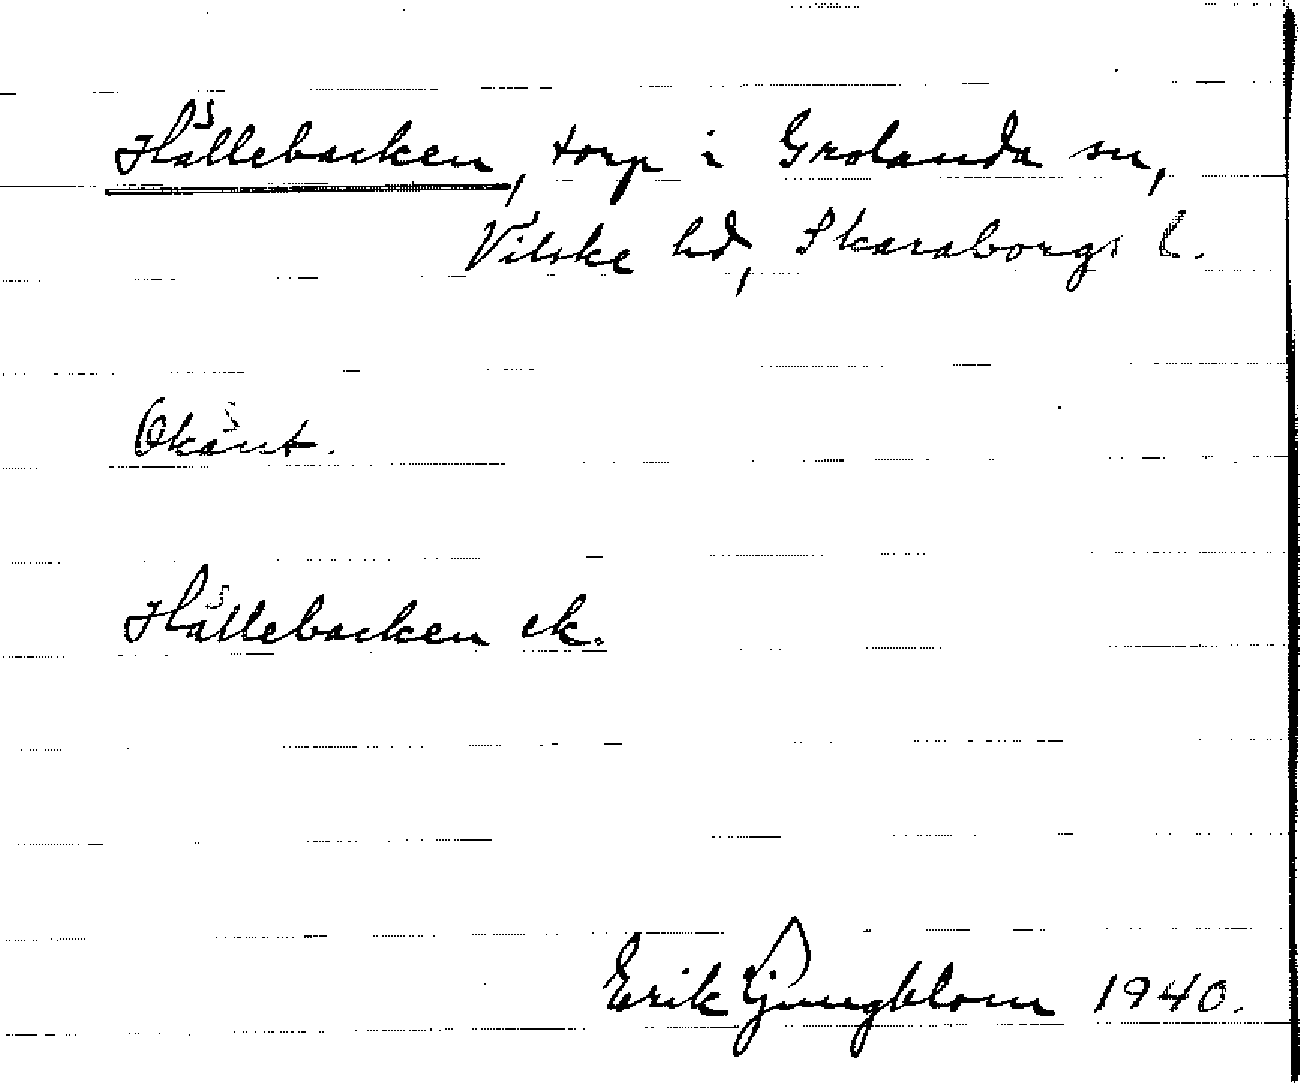 Hällebacken, torp i Grolanda sn,
Vilske hd, Skaraborgs l.
Okänt.
Hällebacken ek.
Erik Ljungblom 1940.